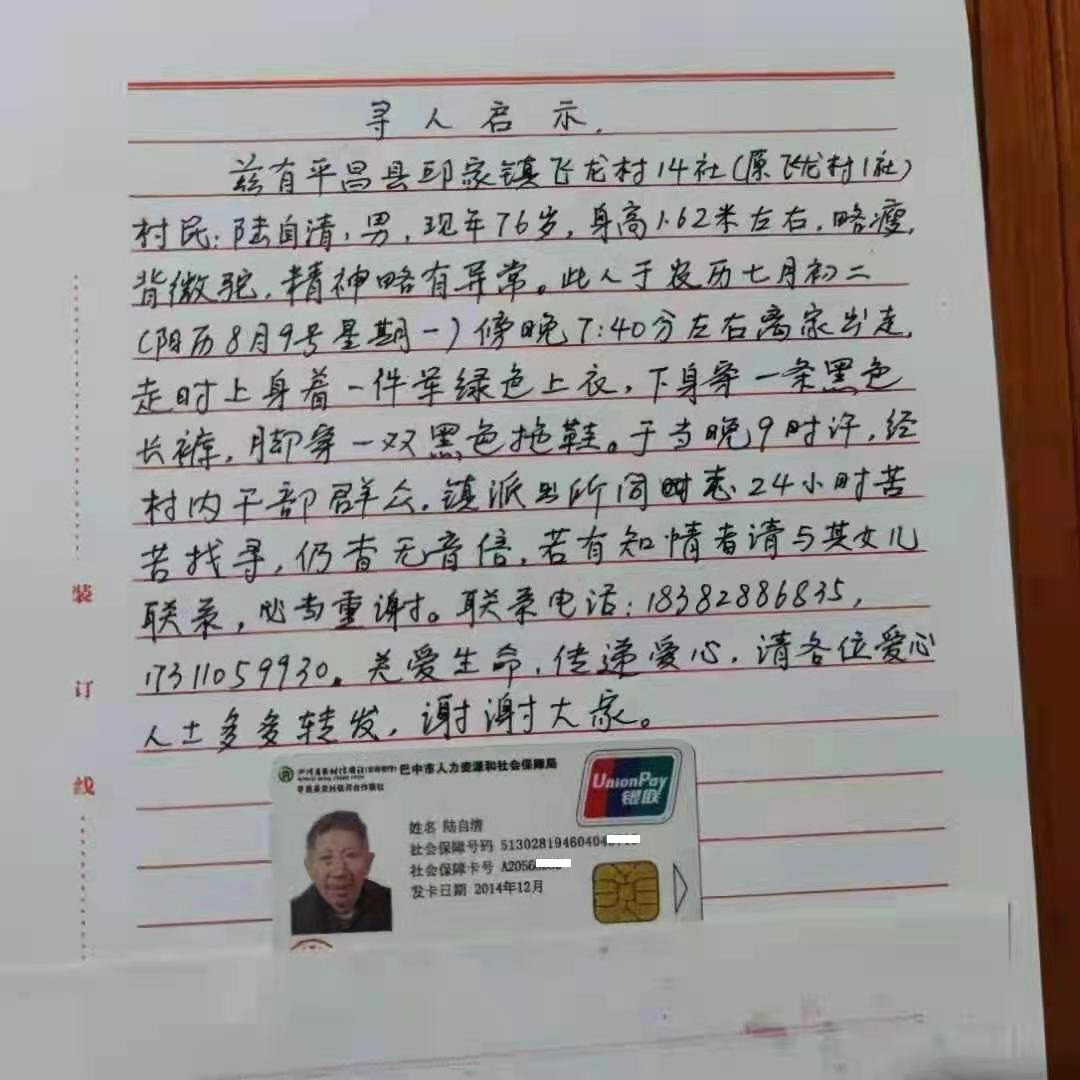 寻人启示.
兹有平昌县邱家镇飞龙村14社(原飞龙村1社)
村民:陆自清,男,现年76岁,身高1.62米左右,略瘦,
背微驼,精神略有异常。此人于农历七月初二
(阳历8月9号星期一)傍晚7:40分左右离家出走,
走时上身着一件军绿色上衣,下身穿一条黑色
长裤,脚穿一双黑色拖鞋。于当晚9时许,经
村内干部群众,镇派出所同时志24小时苦
苦找寻,仍杳无音信,若有知情者请与其女儿
联系,必当重谢。联系电话:18382886835,
17311059930。关爱生命,传递爱心,请各位爱心
人士多多转发,谢谢大家。
装
订
线
巴中市人力资源和社会保障局
UnionPay
银联
姓名 陆自清
社会保障号码 51302819460404
社会保障卡号 A2056
发卡日期 2014年12月